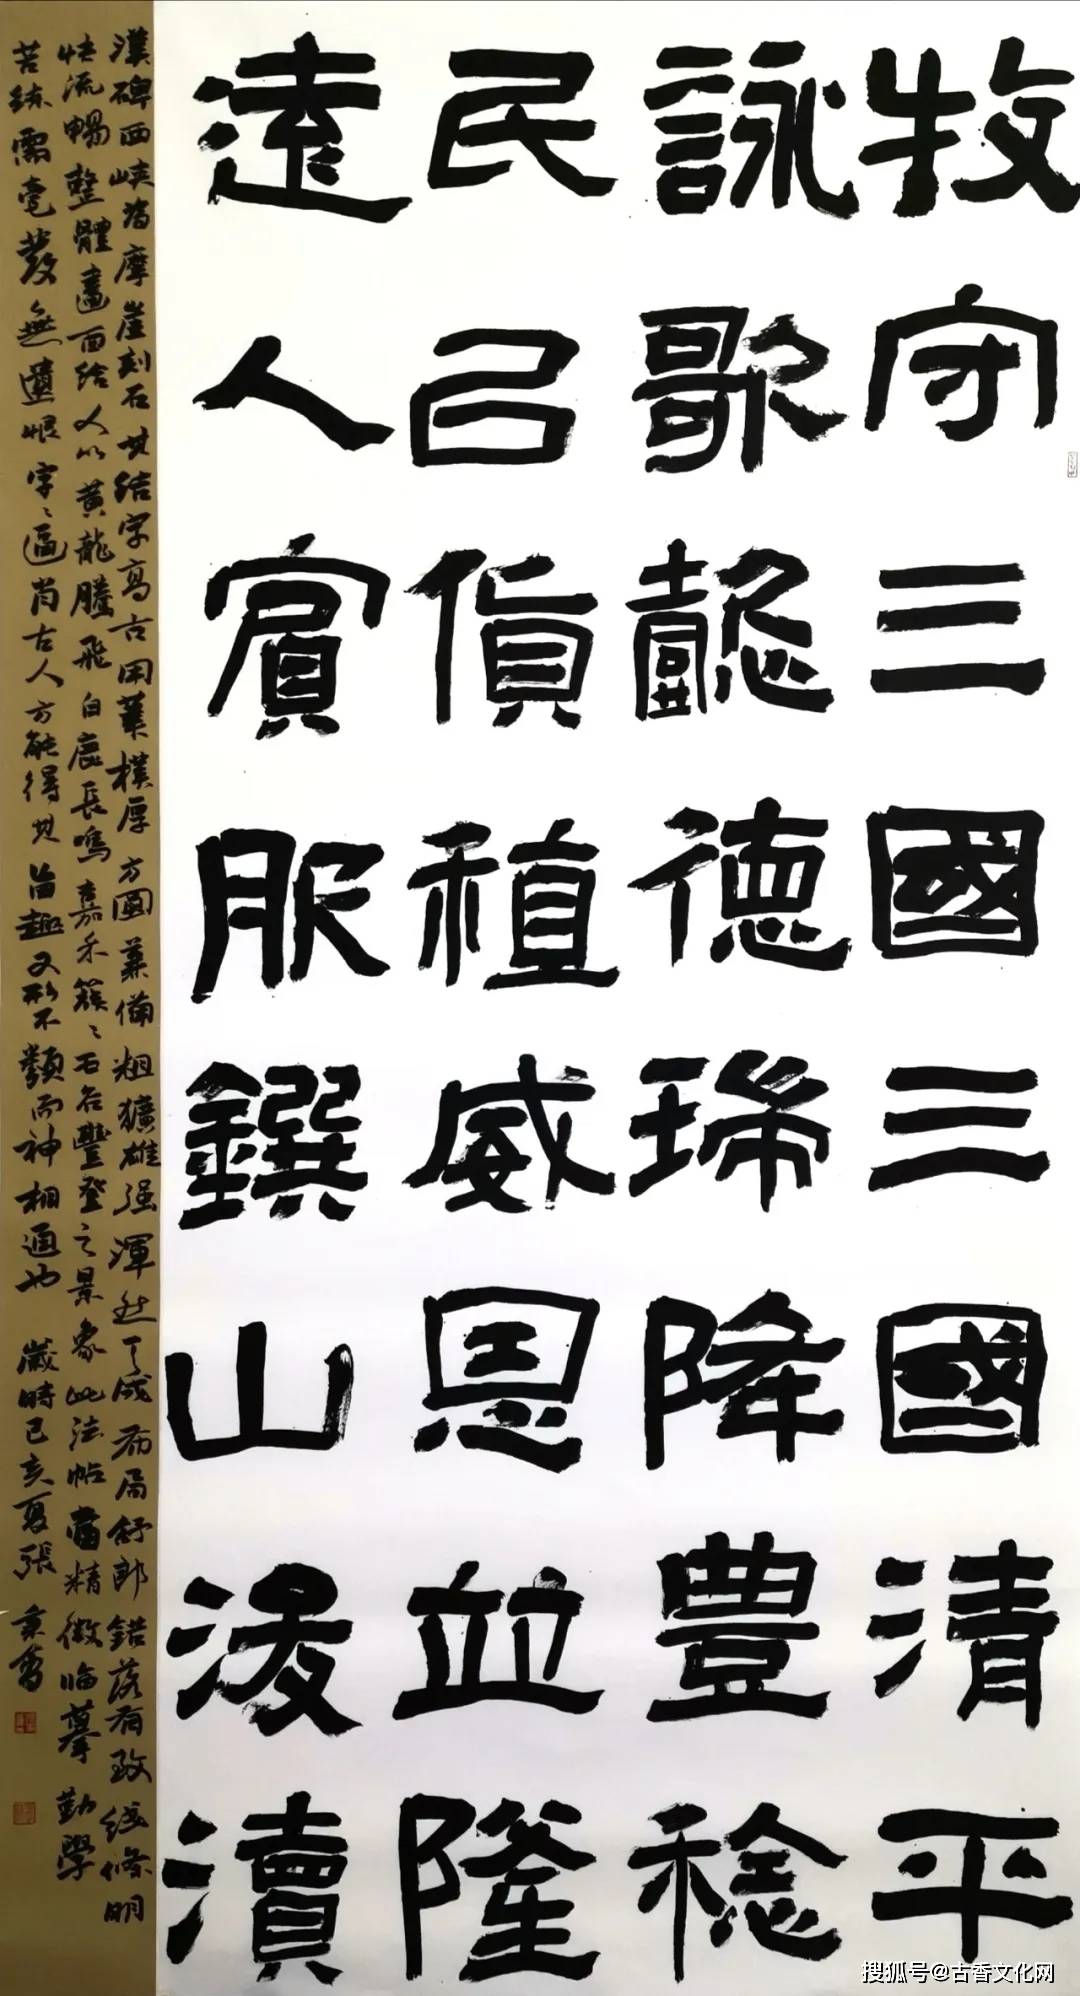 牧守三國三國清平
詠歌懿德瑞降豐稔
民㠯貨稙威恩並隆
遠人賓服鐉山浚瀆
漢碑西峡為摩崖刻石其结字高古用筆樸厚方圓兼備粗獷雄强渾然天成布局舒郎錯落有致线條明
快流暢整體畫面给人以黄龍騰飛白鹿長鳴嘉禾簇〻石谷豐登之景象此法帖當精微临摹勤學
苦練需毫髮無遺恨字〻逼肖古人方能得其旨趣又形不類而神相通也 歲時己亥夏張
搜狐号@古香文化网